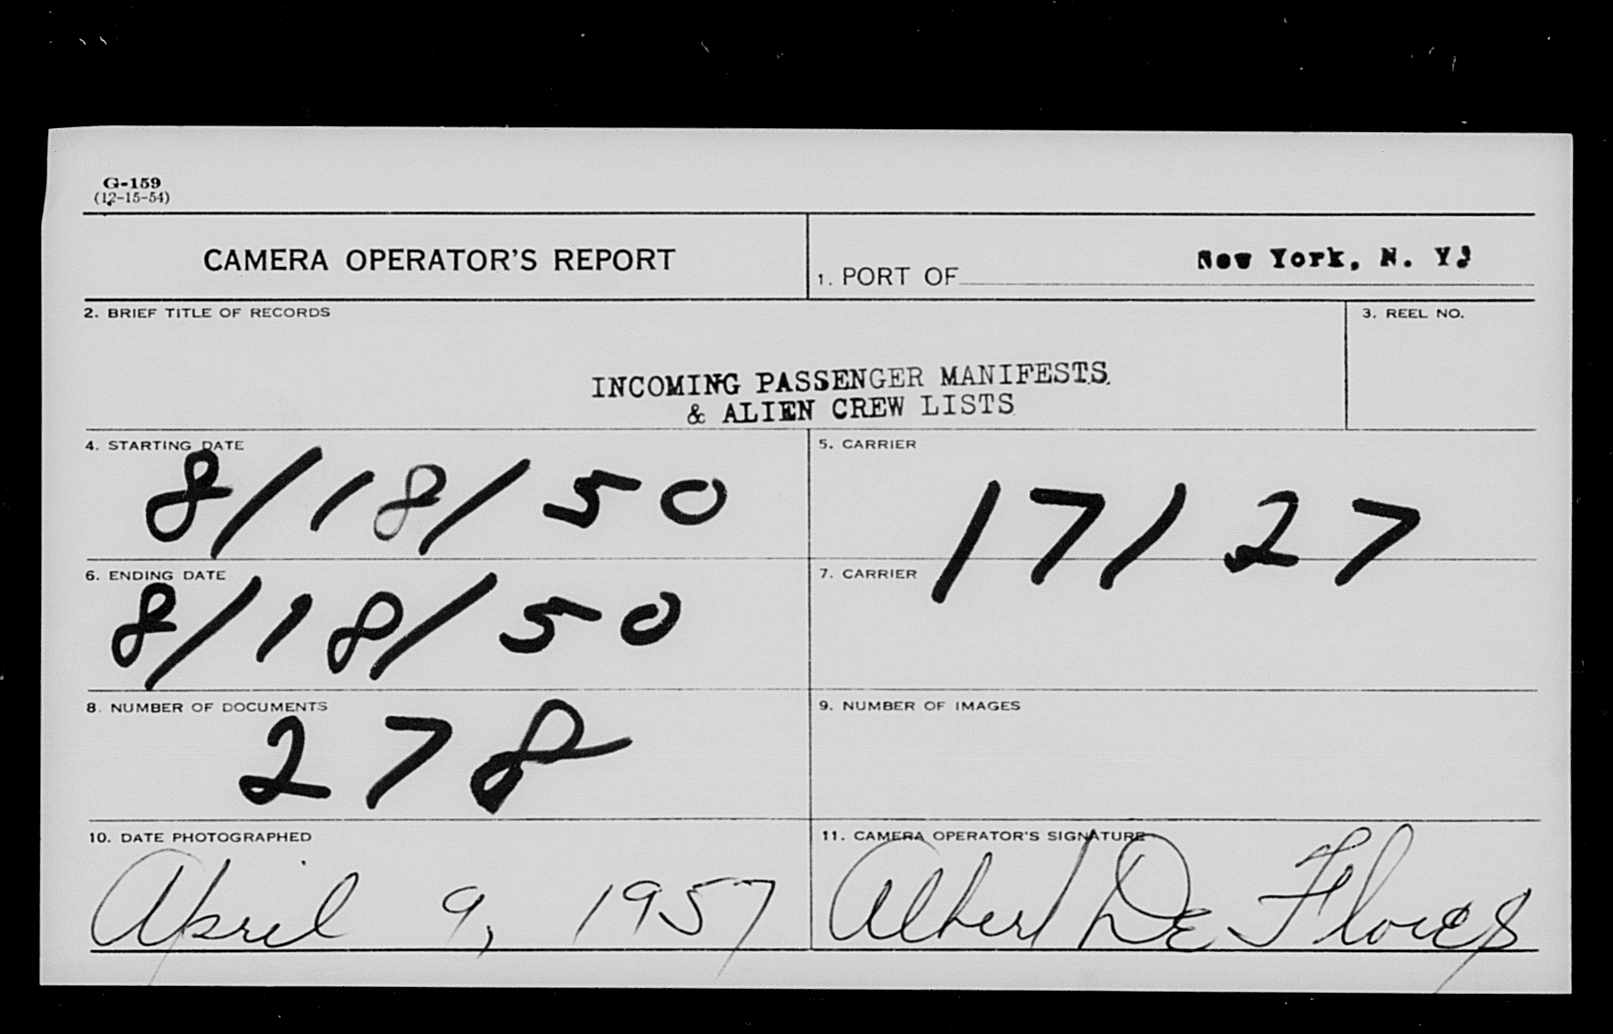 G-159
(12-15-54)
CAMERA OPERATOR'S REPORT
1. PORT OF New York, N. Y.
2. BRIEF TITLE OF RECORDS
3. REEL NO.
INCOMING PASSENGER MANIFESTS
& ALIEN CREW LISTS
4. STARTING DATE
8/18/50
5. CARRIER
17127
6. ENDING DATE
8/18/50
7. CARRIER
8. NUMBER OF DOCUMENTS
278
9. NUMBER OF IMAGES
10. DATE PHOTOGRAPHED
April 9, 1957
11. CAMERA OPERATOR'S SIGNATURE
Albert De Flores